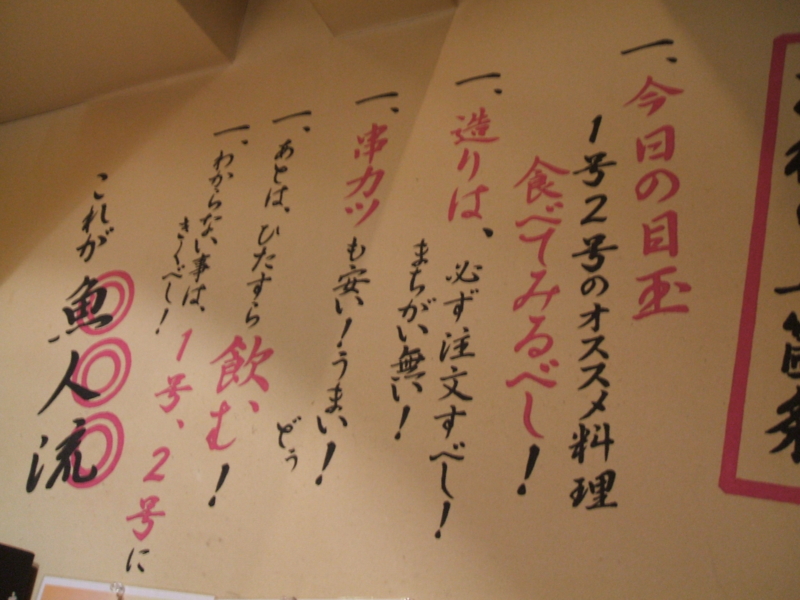 一、今日の目玉
1号2号のオススメ料理
食べてみるべし!
一、造りは、必ず注文すべし!
まちがい無い!
一、串カツも安い!うまい!
一、あとは、ひたすら
どぅ
飲む!
一、わからない事は、1号、2号に
きくべし!
これが魚人流